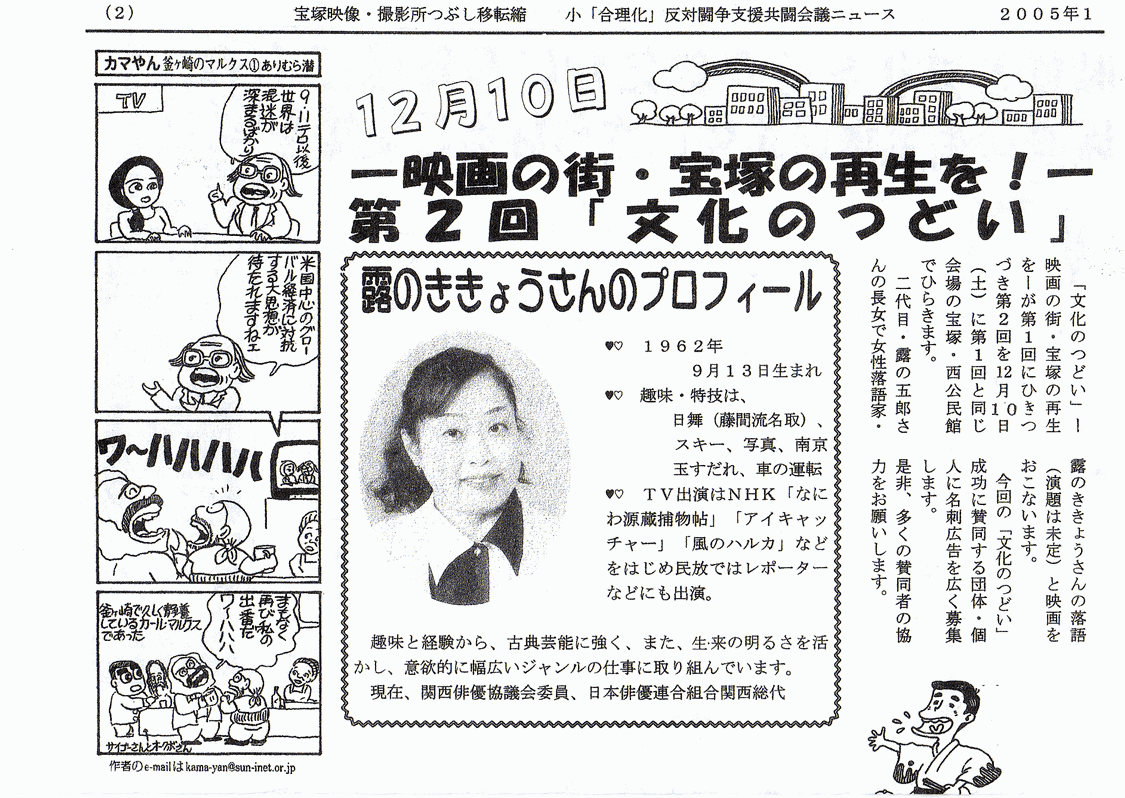 (2)
宝塚映像・撮影所つぶし移転縮　小「合理化」反対闘争支援共闘会議ニュース
2005年1
カマやん 釜ヶ崎のマルクス① ありむら潜
TV
9.11テロ以後
世界は
混迷が
深まるばかり
米国中心のグロー
バル経済に対抗
する大思想が
待たれますねェ
ワ〜ハハハハ
まもなく
再び私の
出番だ
ワ〜ハハハ
釜ヶ崎で久しく静養
しているカール・マルクス
であった
サイゴーさんとオークボさん
作者のe-mailはkama-yan@sun-inet.or.jp
12月10日
―映画の街・宝塚の再生を!―
第2回「文化のつどい」
「文化のつどい」ー
映画の街・宝塚の再生
をーが第1回にひきつ
づき第2回を12月10日
(土)に第1回と同じ
会場の宝塚・西公民館
でひらきます。
二代目・露の五郎さ
んの長女で女性落語家・
露のききょうさんの落語
(演題は未定)と映画を
おこないます。
今回の「文化のつどい」
成功に賛同する団体・個
人に名刺広告を広く募集
します。
是非、多くの賛同者の協
力をお願いします。
露のききょうさんのプロフィール
♥♡　1962年
9月13日生まれ
♥♡　趣味・特技は、
日舞(藤間流名取)、
スキー、写真、南京
玉すだれ、車の運転
♥♡　TV出演はNHK「なに
わ源蔵捕物帖」「アイキャッ
チャー」「風のハルカ」など
をはじめ民放ではレポーター
などにも出演。
趣味と経験から、古典芸能に強く、また、生来の明るさを活
かし、意欲的に幅広いジャンルの仕事に取り組んでいます。
現在、関西俳優協議会委員、日本俳優連合組合関西総代